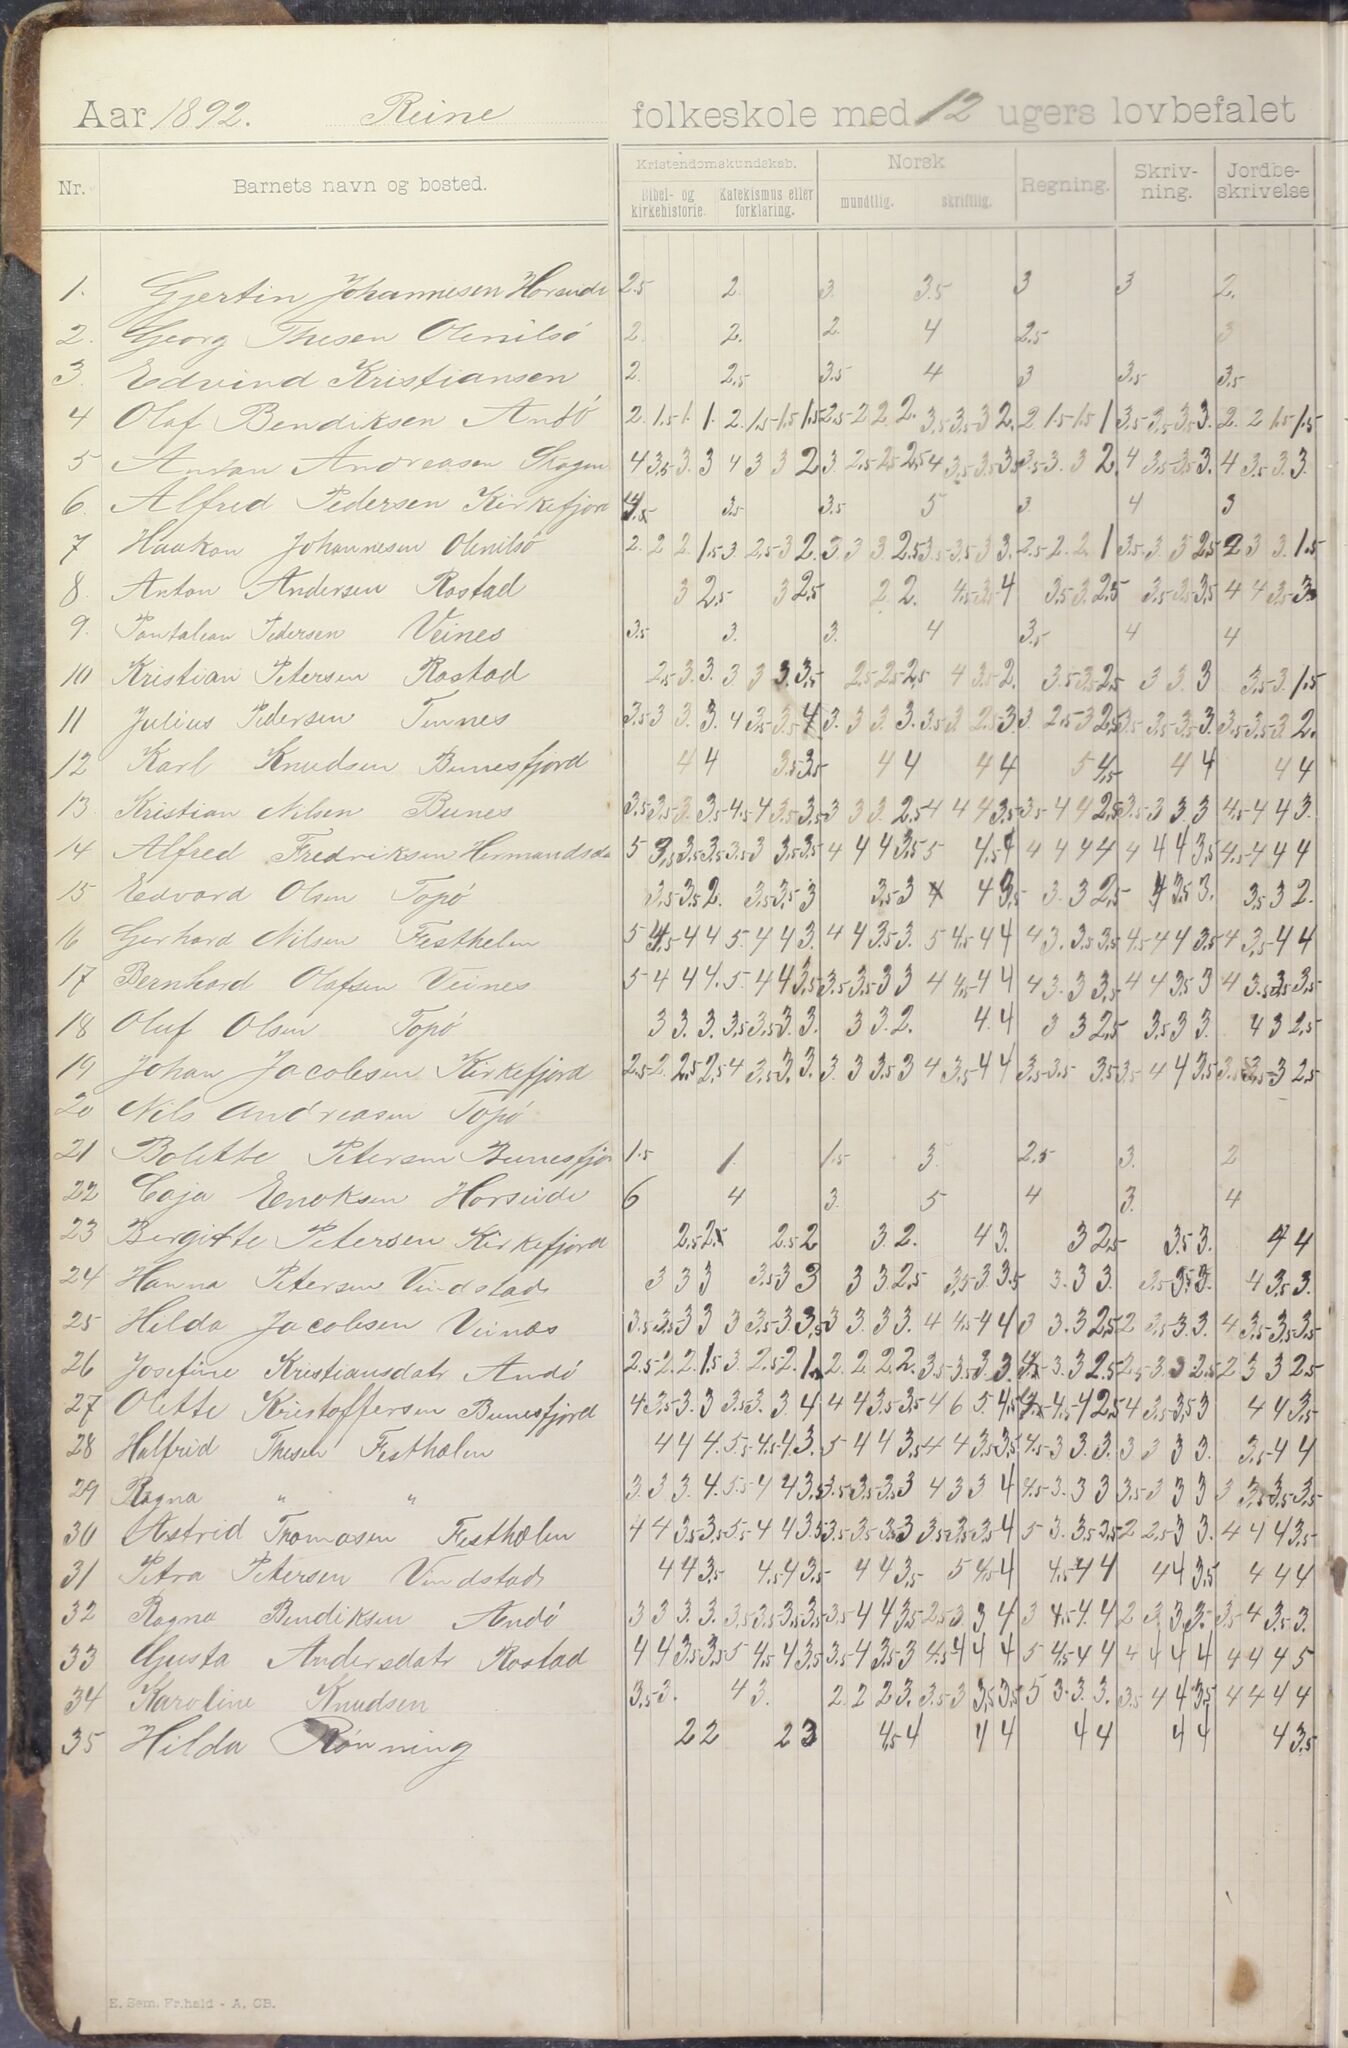 Aar 1892. Reine folkeskole med 12 ugers lovbefalet
Kristendomskundskab. Norsk
Nr. Barnets navn og bosted. Bibel- og kirkehistorie. Katekismus eller forklaring. mundtlig. skriftlig. Regning. Skrivning. Jordbeskrivelse
1. Gjertin Johannesen 2.5 2. 3. 3.5 3 3 2.
2. Georg Thesen Olenilsö 2. 2. 2. 4 2.5 3
3. Edvind Kristiansen 2. 2.5 3.5 4 3 3.5 3.5
4 Olaf Bendiksen Andö 2. 1.5 1. 1. 2. 1.5 1.5 1.5 2.5 2 2 2. 3.5 3.5 3 2. 2 1.5 1.5 1 3.5 3.5 3.5 3. 2. 2 1.5 1.5
5 Andreasen 4 3.5 3. 3 4 3 3 2 3. 2.5 2.5 2.5 4 3.5 3.5 3.5 3.5 3. 3 2. 4 3.5 3.5 3. 4 3.5 3. 3.
6. Alfred Pedersen Kirkefjord 3.5 3.5 5 3. 4 3
7 Haakon Johannesen Olenilsö 2. 2 2. 1.5 3 2.5 3 2. 3 3 3. 2.5 3.5 3.5 3 3. 2.5 2. 2. 1 3.5 3. 3 2.5 2 3 3. 1.5
8. Anton Andersen Rostad 3 2.5 3 2.5 2. 2. 4.5 3.5 4 3.5 3. 2.5 3.5 3.5 3.5 4 4 3.5 3.
9. Pantalean Pedersen Veines 3.5 3. 3. 4 3.5 4 4
10 Kristian Petersen Rostad 2.5 3. 3. 3 3 3. 3.5 2.5 2.5 2.5 4 3.5 2. 3.5 3.5 2.5 3 3 3 3.5 3. 1.5
11 Julius Pedersen Tinnes 3.5 3 3. 3. 4 3.5 3.5 4 3. 3 3 3. 3.5 3. 2.5 3. 3. 2.5 3 2.5 3.5 3.5 3.5 3. 3.5 3.5 3 2.
12 Karl Knudsen Bunesfjord 4 4 3.5 3.5 4 4 4 4 5 4.5 4 4 4 4
13. Kristian Nilsen Bunes 3.5 3.5 3. 3.5 4.5 4 3.5 3.5 3 3 3. 2.5 4 4 4 3.5 3.5 4 4 2.5 3.5 3 3 3 4.5 4 4 3.
14 Alfred Fredriksen 5 3.5 3.5 3.5 3.5 3 3.5 3.5 4 4 4 3.5 5 4.5 4 4 4 4 4 4 4 4 3.5 4.5 4 4 4
15 Edvard Olsen Topö 3.5 3.5 2. 3.5 3.5 3 3.5 3 4 4 3.5 3. 3 2.5 4 3.5 3. 3.5 3 2.
16 Gerhard Nilsen Festhelen 5 4.5 4 4 5. 4 4 3. 4 4 3.5 3. 5 4.5 4 4 4 3. 3.5 3.5 4.5 4 4 3.5 4 3.5 4 4
17 Bernhard Olafsen Veines 5 4 4 4. 5. 4 4 3.5 3.5 3.5 3 3 4 4.5 4 4 4 3. 3 3.5 4 4 3.5 3 4 3.5 3.5 3.5
18 Oluf Olsen Topö 3 3. 3. 3.5 3.5 3. 3. 3 3. 2. 4. 4 3 3 2.5 3.5 3 3. 4 3 2.5
19 Johan Jacobsen Kirkefjord 2.5 2. 2.5 2.5 4 3.5 3. 3. 3. 3 3.5 3 4 3.5 4 4 3.5 3.5 3.5 3.5 4 4 3.5 3.5 3.5 3 2.5
20 Nils Andreasen Topö
21 Bolette Petersen Bunesfjor 1.5 1. 1.5 3. 2.5 3. 2
22 Caja Enoksen Horseide 6 4 3. 5 4 3. 4
23 Bergitte Petersen Kirkefjord 2.5 2.5 2.5 2 3. 2. 4 3. 3 2.5 3.5 3. 4 4
24 Hanna Petersen Vindstad 3 3 3 3.5 3 3 3 3 2.5 3.5 3. 3.5 3. 3 3. 3.5 3.5 3. 4 3.5 3.
25 Hilda Jacobsen Veines 3.5 3.5 3 3 3 3.5 3 3.5 3 3. 3 3. 4 4.5 4 4 3 3. 3 2.5 2 3.5 3. 3. 4 3.5 3.5 3.5
26 Josefine Kristiansdatr Andö 2.5 2. 2. 1.5 3. 2.5 2. 1. 2. 2. 2. 2. 3.5 3.5 3. 3. 3. 3 2.5 2.5 3. 3 2.5 2 3 3 2.5
27 Olette Kristoffersen Bunesfjord 4 3.5 3. 3 3.5 3. 3. 4 4 4 3.5 3.5 4 6 5. 4.5 4.5 4 2.5 4 3.5 3.5 3 4 4 3.5
28 Halfrid Thesen Festhælen 4 4 4. 5.5 4.5 4 3. 5 4 4 3.5 4 4 3.5 3.5 4.5 3 3. 3. 3 3 3 3. 3.5 4 4
29 Ragna " " 3. 3 3. 4. 5.5 4 4 3.5 3.5 3.5 3.5 3 4 3 3 4 4.5 3. 3 3 3.5 3 3 3 3 3.5 3.5 3.5
30 Astrid Thomasen Festhælen 4 4 3.5 3.5 5.5 4 4 3.5 3.5 3.5 3.5 3 3.5 3.5 3.5 4 5 3. 3.5 3.5 2 2.5 3 3. 4 4 4 3.5
31 Petra Petersen Vindstad 4 4 3.5 4.5 4 3.5 4 4 3.5 5 4.5 4 4.5 4 4 4 4 3.5 4 4 4
32 Ragna Bendiksen Andö 3 3 3. 3. 3.5 3.5 3.5 3.5 3.5 4 4 3.5 2.5 3. 3 4 3 4.5 4. 4 2 3 3. 3. 3.5 4 3.5 3.
33 Gusta Andersdatr Rostad 4 4 3.5 3.5 5 4.5 4 3.5 3.5 4 3.5 3 4.5 4 4 4 5 4.5 4 4 4 4 4 4 4 4 4 5
34 Karoline Knudsen 3.5 3. 4 3. 2. 2 2 3. 3.5 3 3.5 3.5 5 3. 3. 3. 3.5 4 4 3.5 4 4 4 4
35 Hilda Rönning 2 2 2 3 4.5 4 4 4 4 4 4 4 4 3.5
E. Sem, Fr.hald - A. CB.